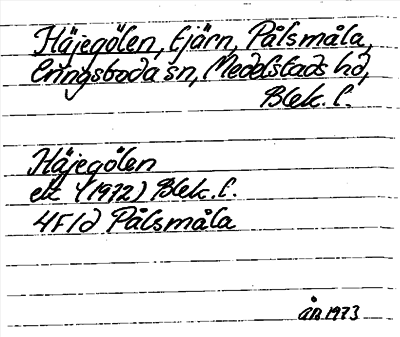 Häjegölen, tjärn, Pålsmåla,
Eringsboda sn, Medelstads hd,
Blek. l.
Häjegölen
ek 4 (1972) Blek. l.
4F/d Pålsmåla
ån 1973